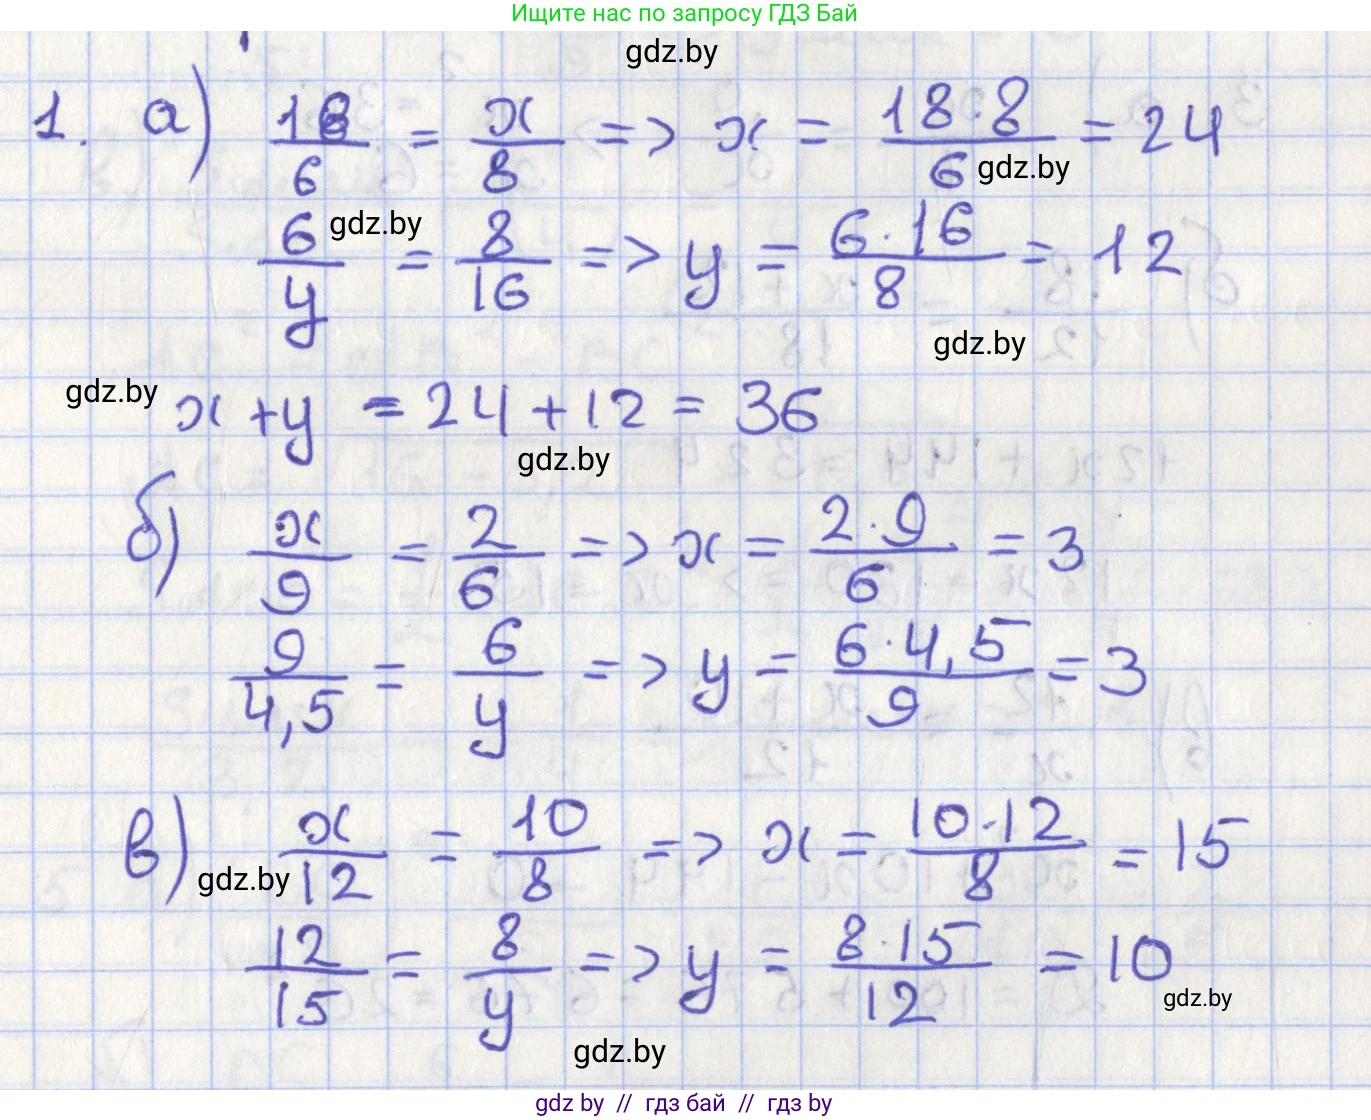 Ищите нас по запросу ГДЗ Бай
gdz.by
1. а) 18/6 = x/8 => x = 18·8/6 = 24
gdz.by
gdz.by
6/y = 8/16 => y = 6·16/8 = 12
gdz.by
gdz.by
x + y = 24 + 12 = 36
gdz.by
б) x/9 = 2/6 => x = 2·9/6 = 3
9/4,5 = 6/y => y = 6·4,5/9 = 3
в) x/12 = 10/8 => x = 10·12/8 = 15
gdz.by
12/15 = 8/y => y = 8·15/12 = 10
gdz.by
gdz.by
gdz by // гдз бай // гдз by